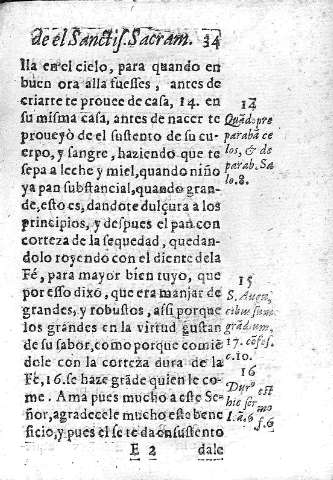 de el Sanctiſ. Sacram. 34
lla en el cielo, para quando en
buen ora alla fueſſes, antes de
criarte te prouee de caſa, 14. en
ſu miſma caſa, antes de nacer te
proueyò de el ſuſtento de ſu cu-
erpo, y ſangre, haziendo que te
ſepa a leche y miel, quando niño
ya pan ſubstancial, quando gran-
de, esto es, dandote dulçura a los
principios, y deſpues el pan con
corteza de la ſequedad, quedan-
dolo royendo con el diente dela
Fé, para mayor bien tuyo, que
por eſſo dixo, que era manjar de
grandes, y robuſtos, aſſi porque
los grandes en la virtud guſtan
de ſu ſabor, como porque comiẽ
dole con la corteza dura de la
Fé, 16. ſe haze grãde quien le co-
me. Ama pues mucho a este Se-
ñor, agradecele mucho esto bene
ficio, y pues el ſe te da en ſuſtento
E 2 dale
14
Quãdo pre
parabã ce
los, & de
parab. Sa
lo. 8.
15
S. Auguſ,
cibus ſum
grãdium,
17. cõfeſ.
c. 10.
16
Durꝰ eſt
hic ſermo
I. ã. 6
ſ. 6